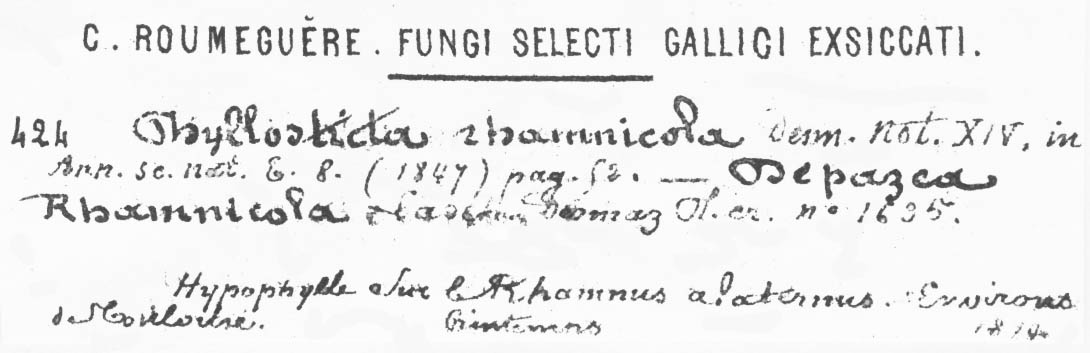 C. ROUMEGUÈRE. FUNGI SELECTI GALLICI EXSICCATI.
424 Phyllosticta rhamnicola Desm. Not. XIV, in
Ann. sc. nat. t. 8. (1847) pag. 32. — Depazea
Rhamnicola Desmaz Pl. cr. no 1635.
Hypophylle sur le Rhamnus alaternus. Environs
de Toulouse. Printemps 1874